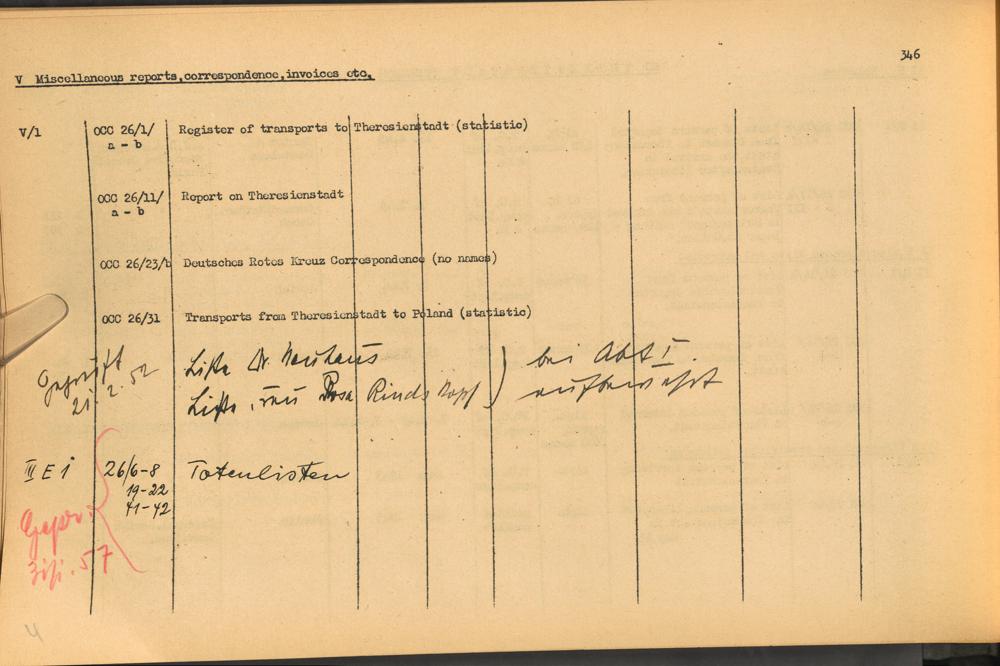 346
V Miscellaneous reports,correspondence,invoices etc.
V/1 OCC 26/1/ Register of transports to Theresienstadt (statistic)
a - b
OCC 26/11/ Report on Theresienstadt
a - b
OCC 26/23/b Deutsches Rotes Kreuz Correspondence (no names)
OCC 26/31 Transports from Theresienstadt to Poland (statistic)
Geprüft
21. 2. 52
Liste Dr. Neuhaus ) bei Abt I.
Liste Frau Rosa Rindskopf ) aufbewahrt
III E 1 26/6-8 Totenlisten
19-22
41-42
Gepr.
57
4